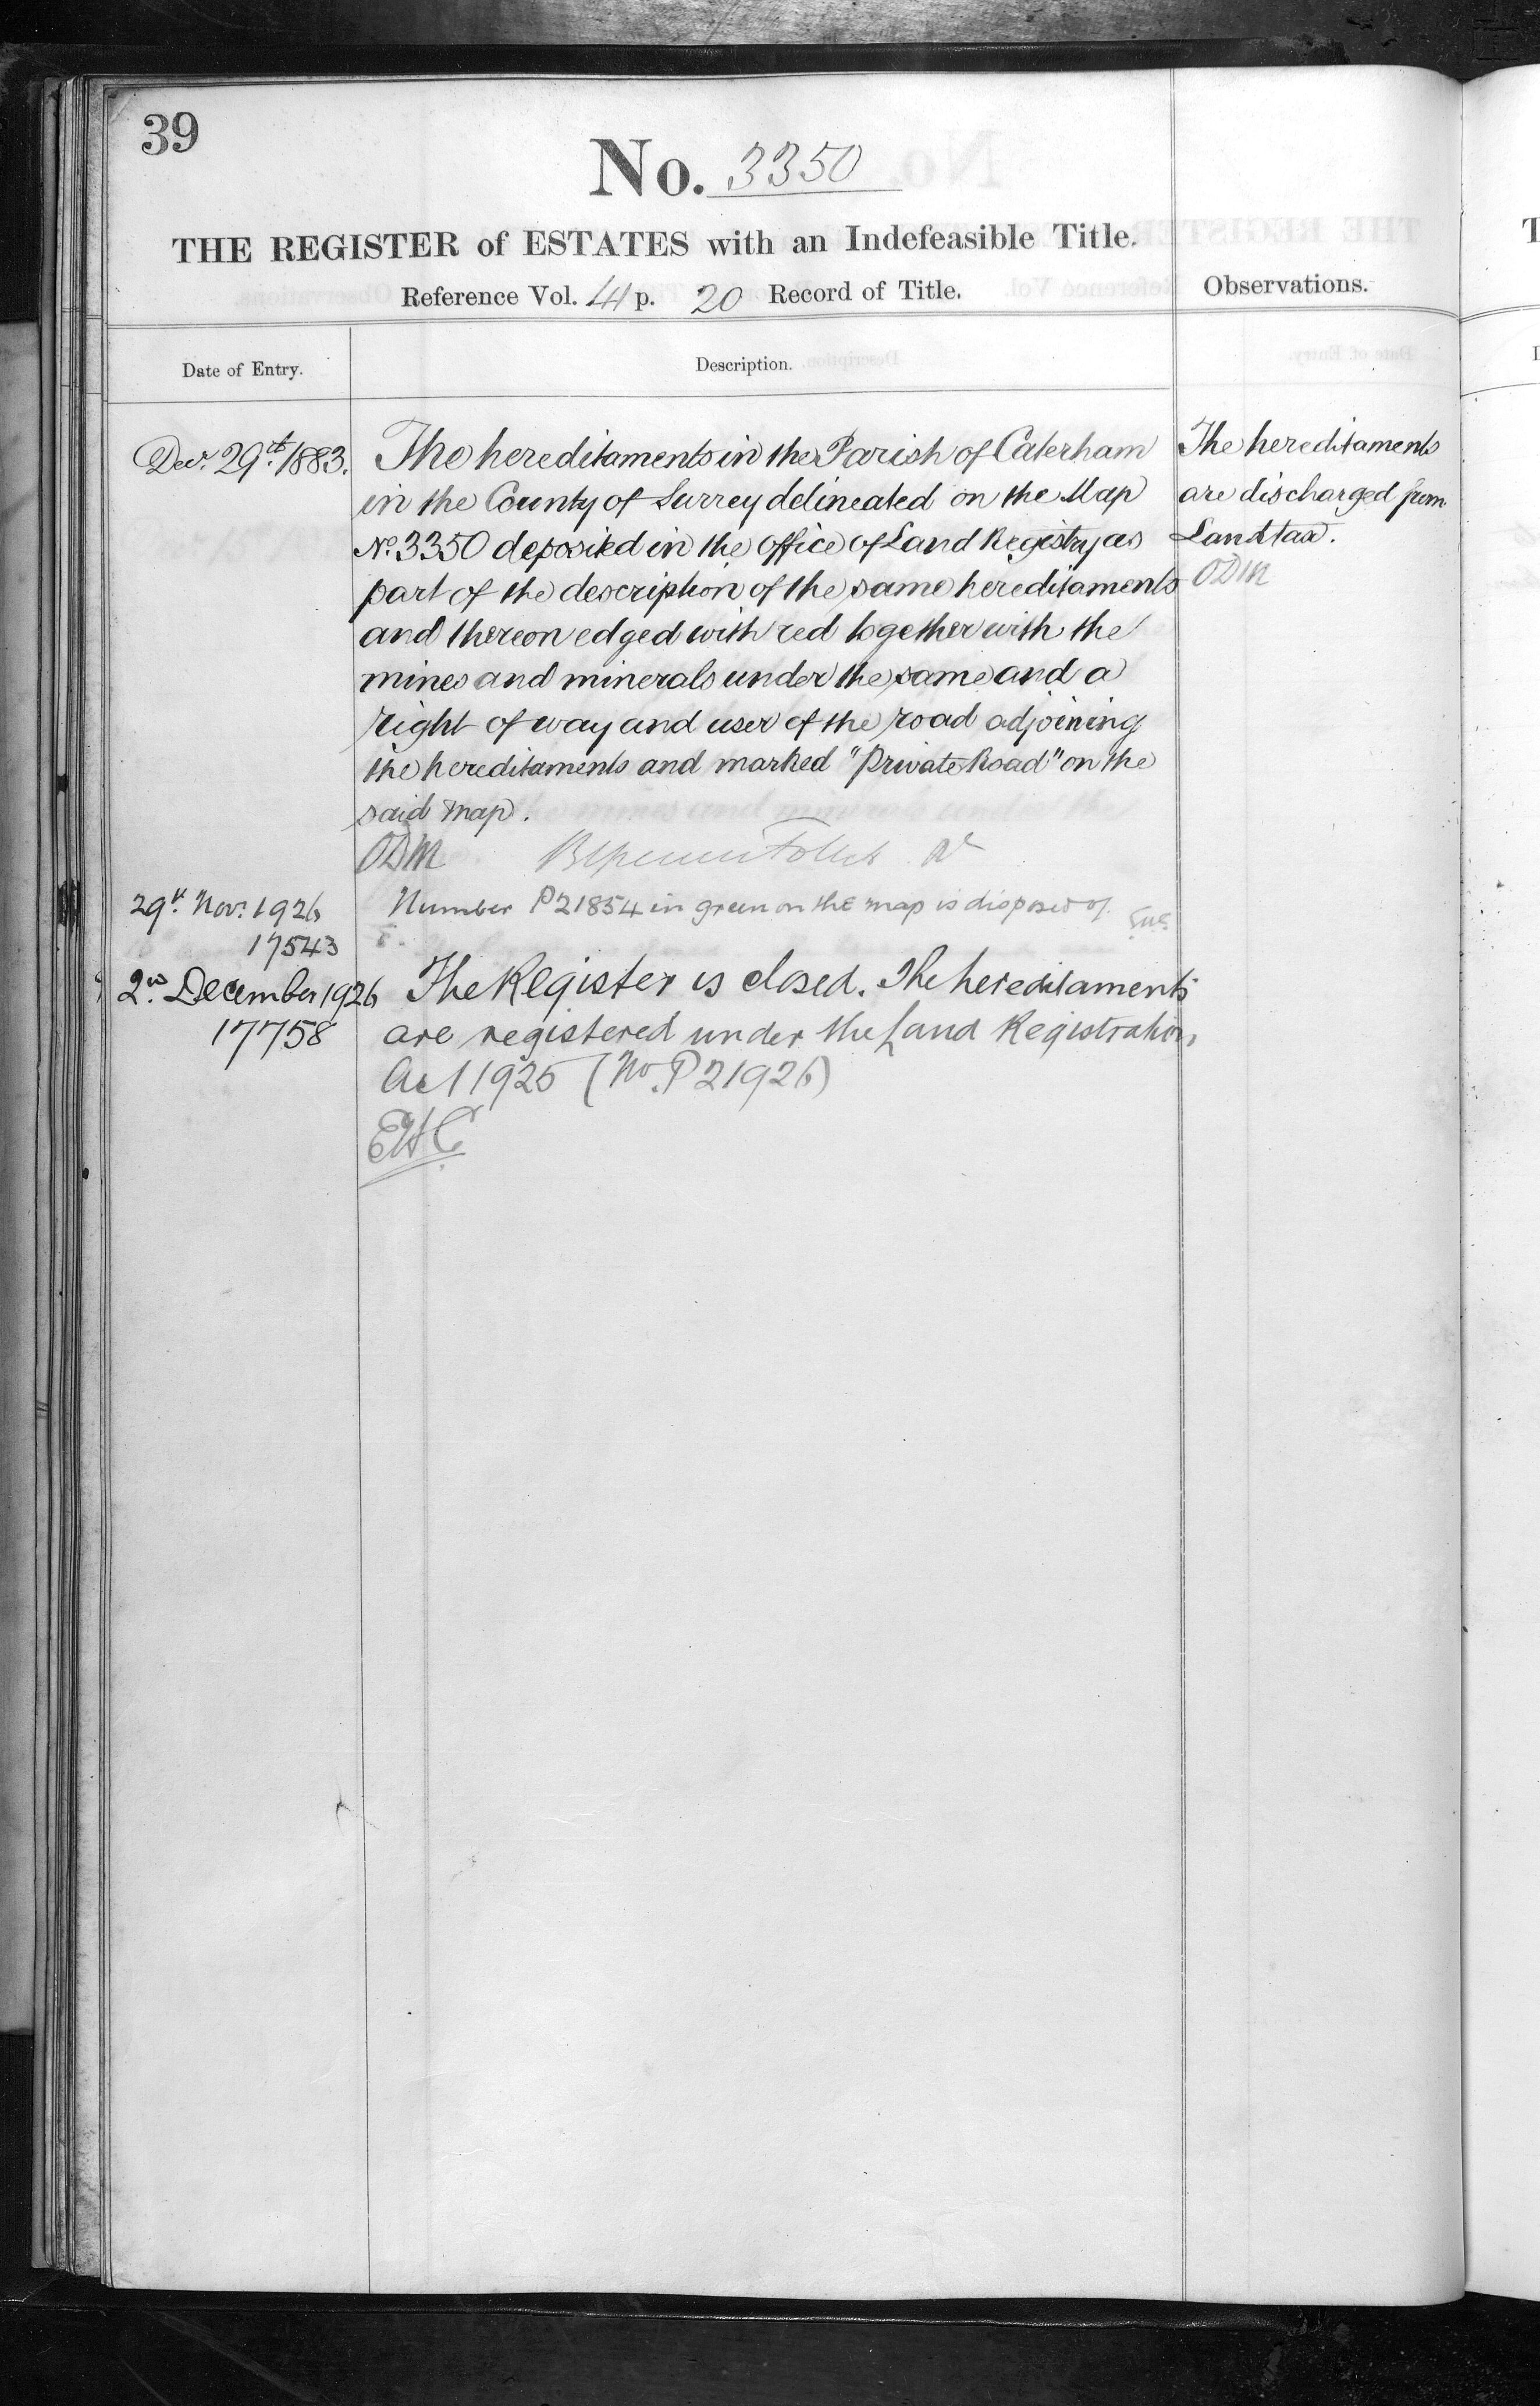 39
No. 3350
THE REGISTER of ESTATES with an Indefeasible Title.
Reference Vol. 4 p. 20 Record of Title.
Observations.
Date of Entry.
Description.
Decr. 29th 1883.
The hereditaments in the Parish of Caterham
in the County of Surrey delineated on the Map
No. 3350 deposited in the office of Land Registry as
part of the description of the same hereditaments
and thereon edged with red together with the
mines and minerals under the same and a
right of way and user of the road adjoining
the hereditaments and marked "Private Road" on the
said Map.
ODM
The hereditaments
are discharged from
Land tax.
ODM
29th. Nov. 1926
17543
Number P21854 in green on the map is disposed of.
2nd. December 1926
17758
The Register is closed. The hereditaments
are registered under the Land Registration
Act 1925 (No. P21926)
EHC